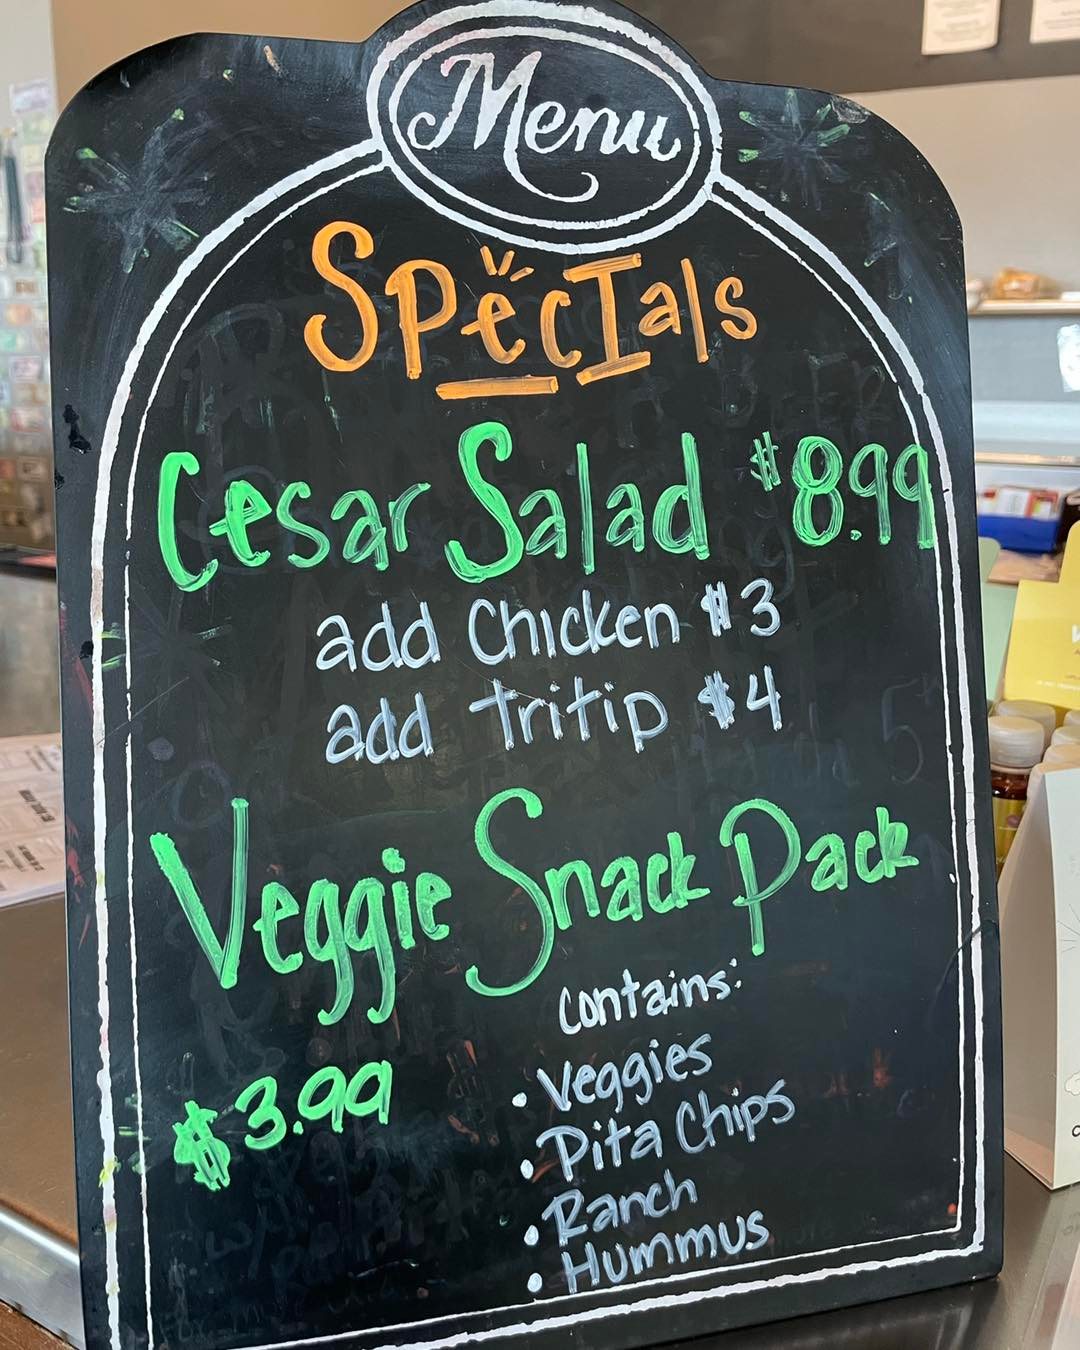 Menu
Specials
Cesar Salad $8.99
add Chicken $3
add tritip $4
Veggie Snack Pack
contains:
$3.99
• Veggies
• Pita Chips
• Ranch
• Hummus